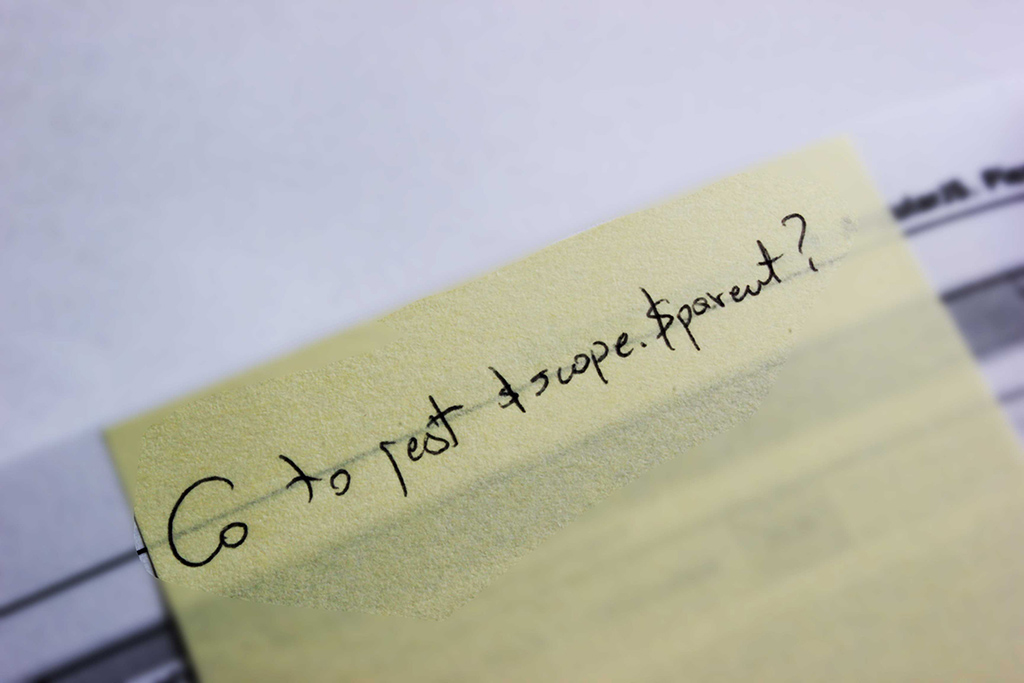 Co to jest $scope.$parent?